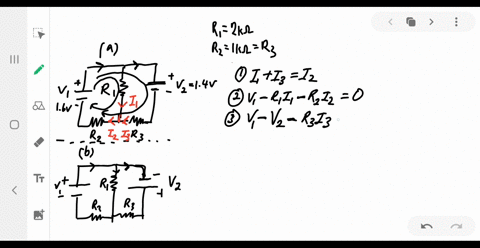 (a)
R₁=2kΩ
R₂=1kΩ=R₃
V₁
1.6V
+
-
R₁
I₁
+
-
V₂=1.4V
R₂ I₂ I₃ R₃
① I₁+I₃=I₂
② V₁-R₁I₁-R₂I₂=0
③ V₁-V₂-R₃I₃
(b)
V₁
+
-
R₁
-
+
V₂
R₂
R₃
Tт